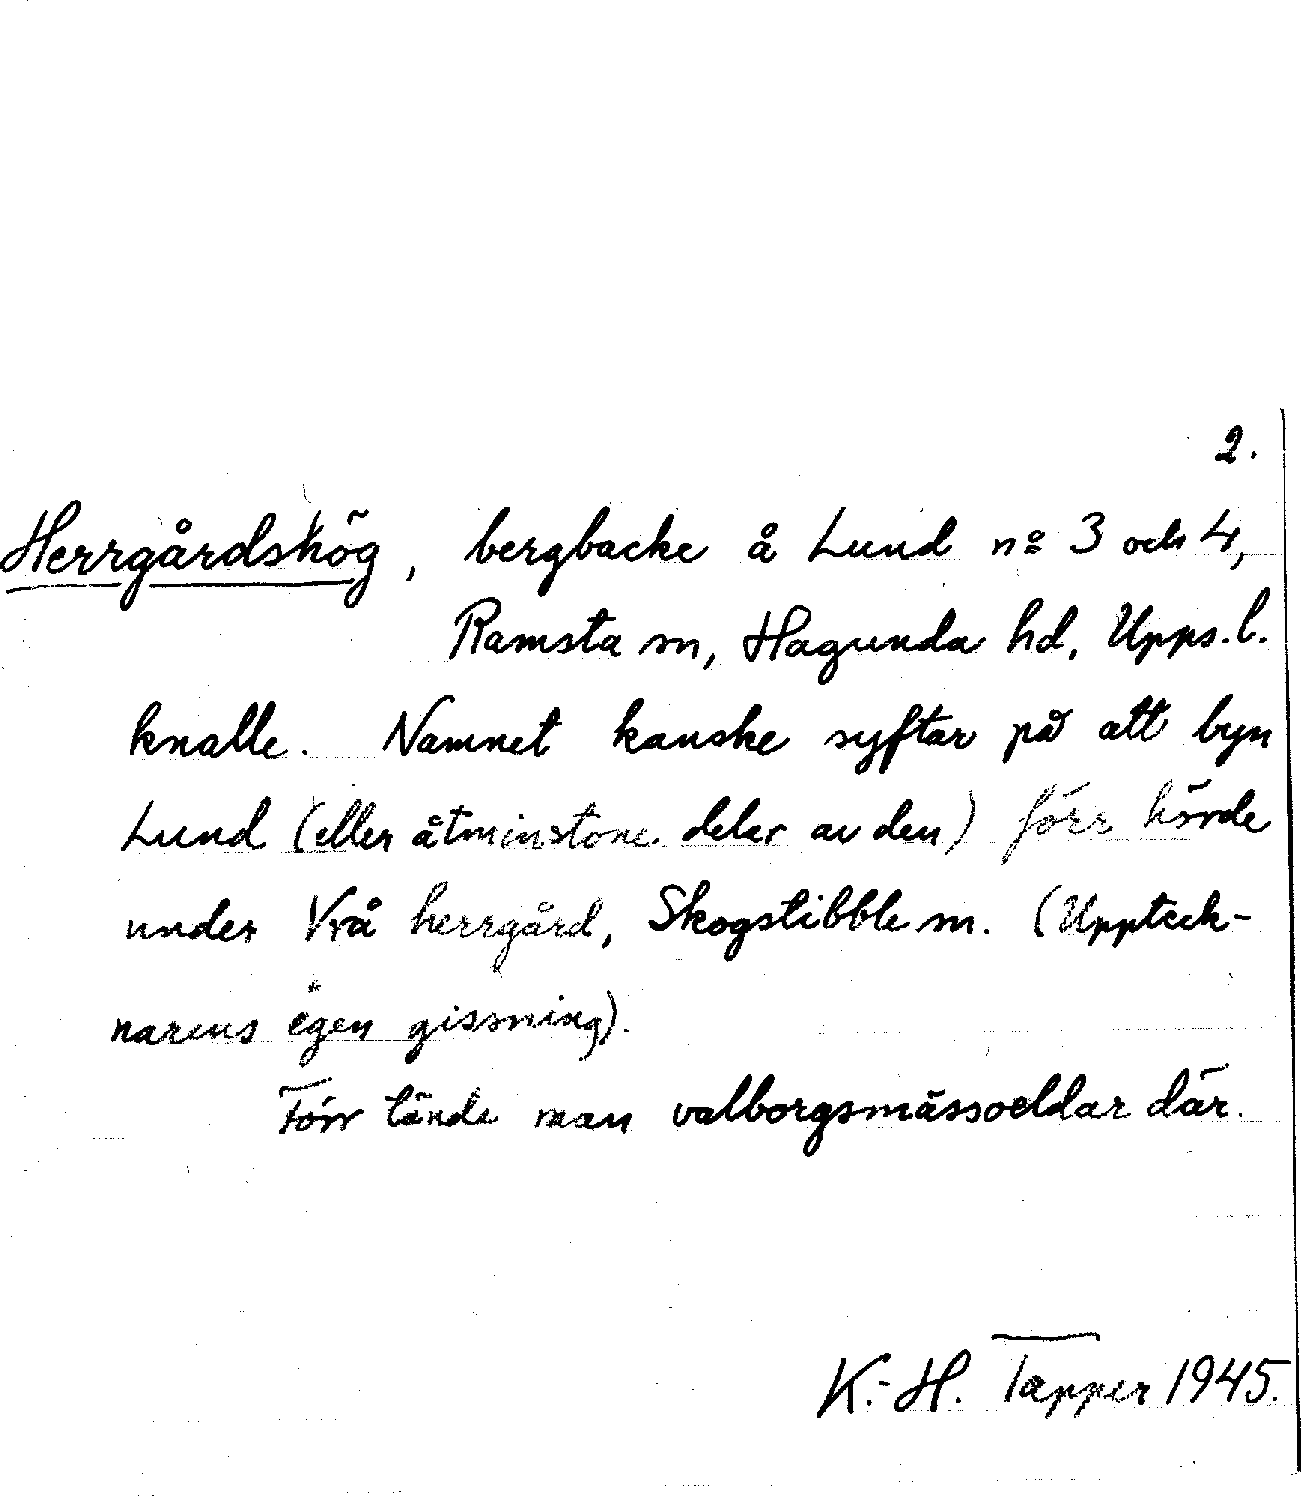 2.
Herrgårdshög, bergbacke å Lund nº 3 och 4,
Ramsta sn, Hagunda hd, Upps. l.
knalle. Namnet kanske syftar på att byn
Lund (eller åtminstone delar av den) förr hörde
under Vrå herrgård, Skogstibble sn. (Uppteck-
narens egen gissning).
Förr tände man valborgsmässoeldar där.
K.-H. Tapper 1945.